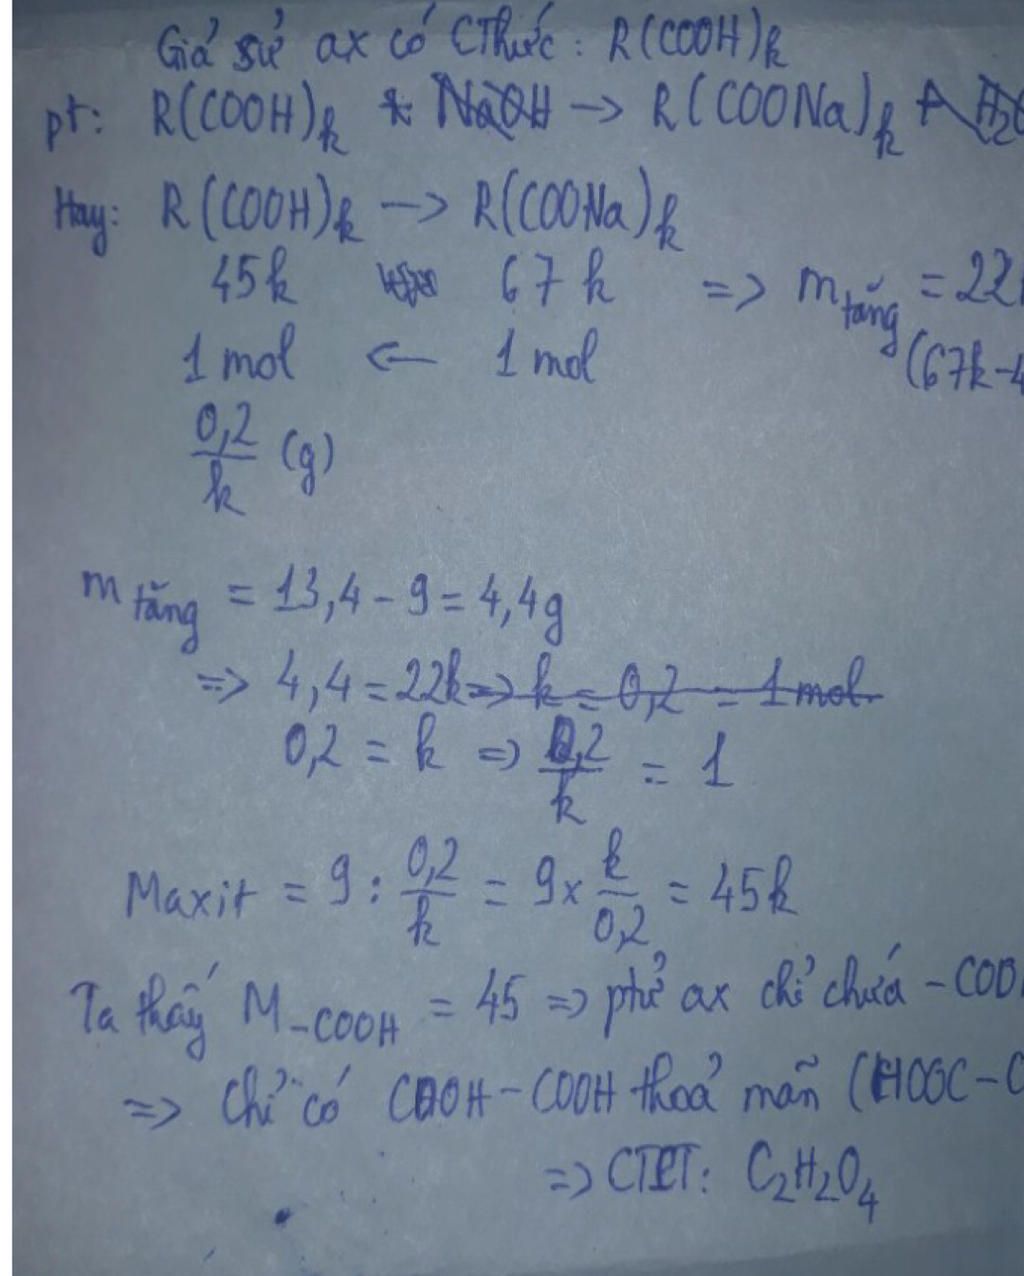 Giả sử ax có CThức: R(COOH)k
pt: R(COOH)k + NaOH -> R(COONa)k + H2O
Hay: R(COOH)k -> R(COONa)k
45k 67k => m tăng = 22
1 mol <- 1 mol (67k-4
0,2/k (g)
m tăng = 13,4 - 9 = 4,4g
=> 4,4 = 22k => k = 0,2 = 1 mol.
0,2 = k => 0,2/k = 1
Maxit = 9 : 0,2/k = 9 x k/0,2 = 45k
Ta thấy M-COOH = 45 => ptử ax chỉ chứa -COO
=> Chỉ có COOH-COOH thoả mãn (HOOC-C
=> CTPT: C2H2O4